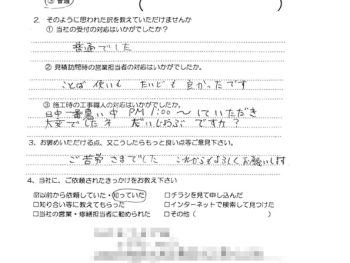 ③ 普通
2. そのように思われた訳を教えていただけませんか
① 当社の受付の対応はいかがでしたか?
普通でした
② 見積訪問時の営業担当者の対応はいかがでしたか。
ことば使いも たいども 良かったです
③ 施工時の工事職人の対応はいかがでしたか。
日中一番暑い中 PM 1:00〜していただき
大変でしたネ だいじょうぶですか?
3. お褒めいただける点、又こうしたらもっと良い点等ご意見。
ご苦労さまでした これからもよろしくお願いします
4. 当社に、ご依頼されたきっかけをお教え下さい
☑以前から依頼していた・知っていた
□チラシを見て申し込んだ
□知り合い等に教えてもらった
□インターネットで検索して見つけた
□当社の営業・修繕担当者に勧められた
□その他(